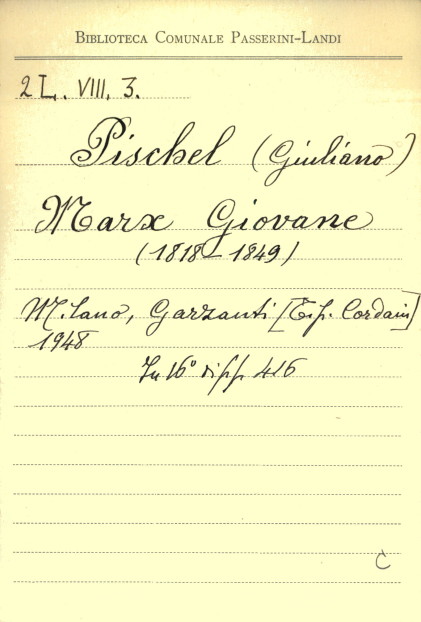 BIBLIOTECA COMUNALE PASSERINI-LANDI
2 L. VIII. 3.
Pischel (Giuliano)
Marx Giovane
(1818-1849)
Milano, Garzanti [Tip. Cordani]
1948
In 16° di pp. 416
C